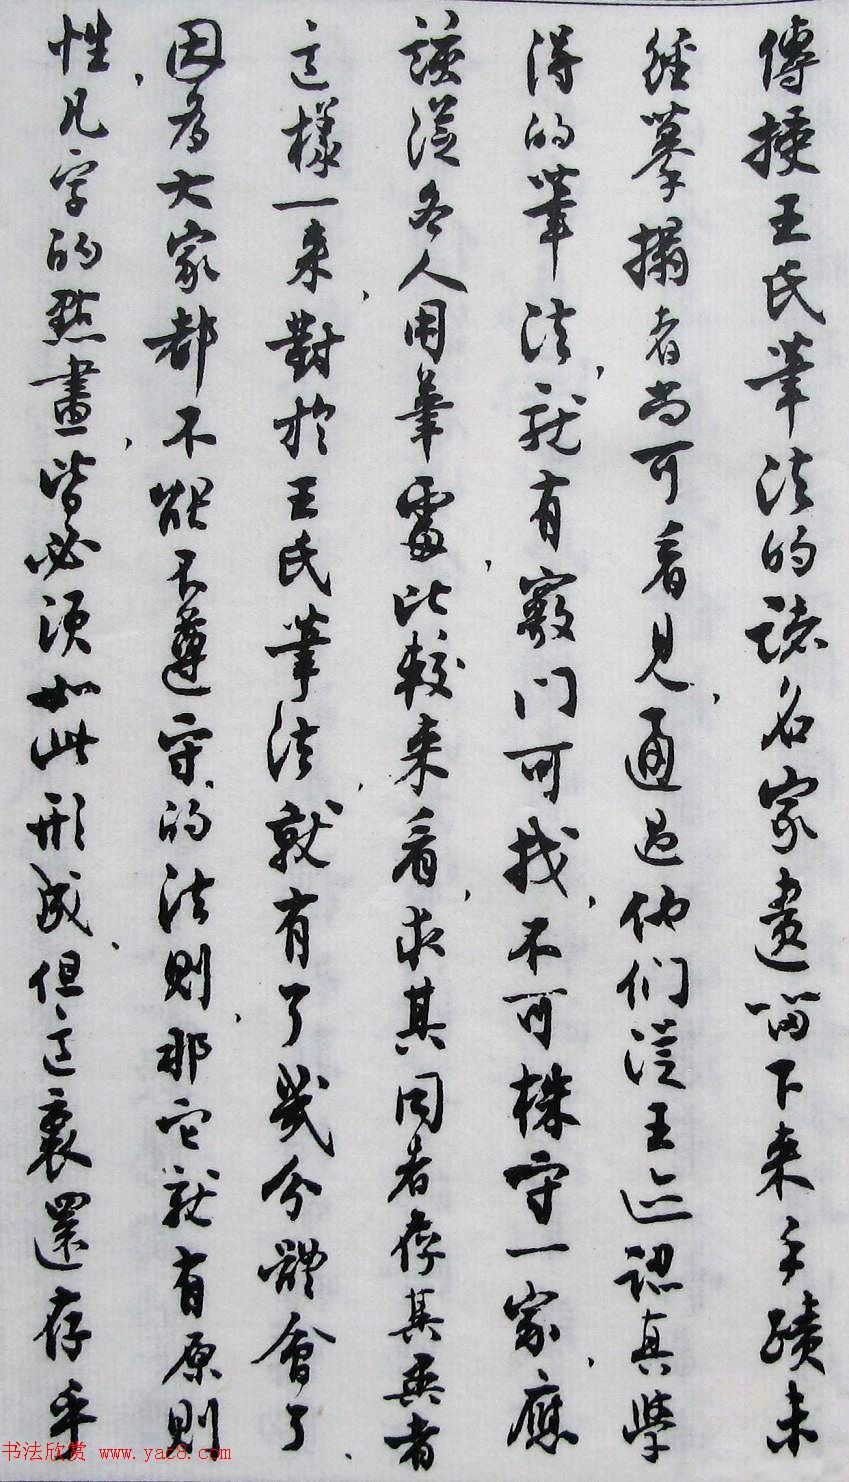 傳授王氏筆法的諸名家遺留下来手蹟未
經摹搨者尚可看見，通過他们從王迹認真學
得的筆法，就有竅门可找，不可株守一家，應
該從各人用筆處，比較来看，求其同者存其異者
這樣一来，對於王氏筆法，就有了幾分體會了、
因為大家都不能不遵守的法則，那它就有原則
性，凡字的點畫，皆必須如此形成、但這裏還存乎
书法欣赏 www.yac8.com